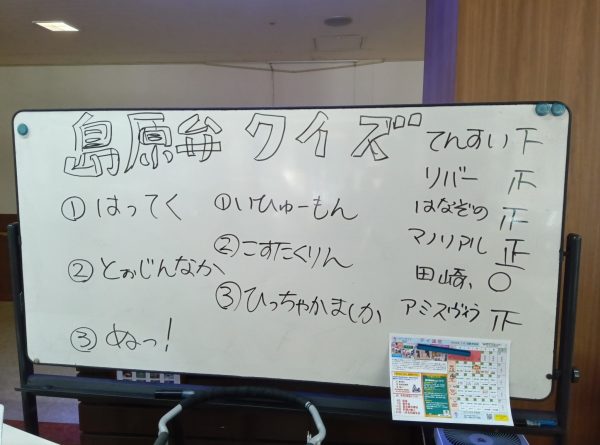 島原弁 クイズ
① はってく
② とぉじんなか
③ ぬっ!
① いひゅーもん
② こすたくりん
③ ひっちゃかましか
てんすい 下
リバー 正
はなぞの 正
マノリアル 正
田崎 ○
アミスヴィラ 正